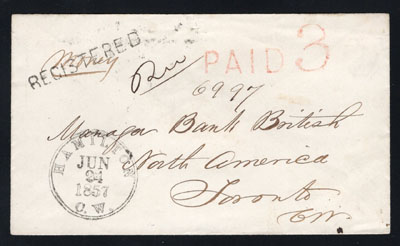 Money
REGISTERED
PAID 3
6997
Manager Bank British
North America
Toronto
CW
HAMILTON
JUN
24
1857
C.W.